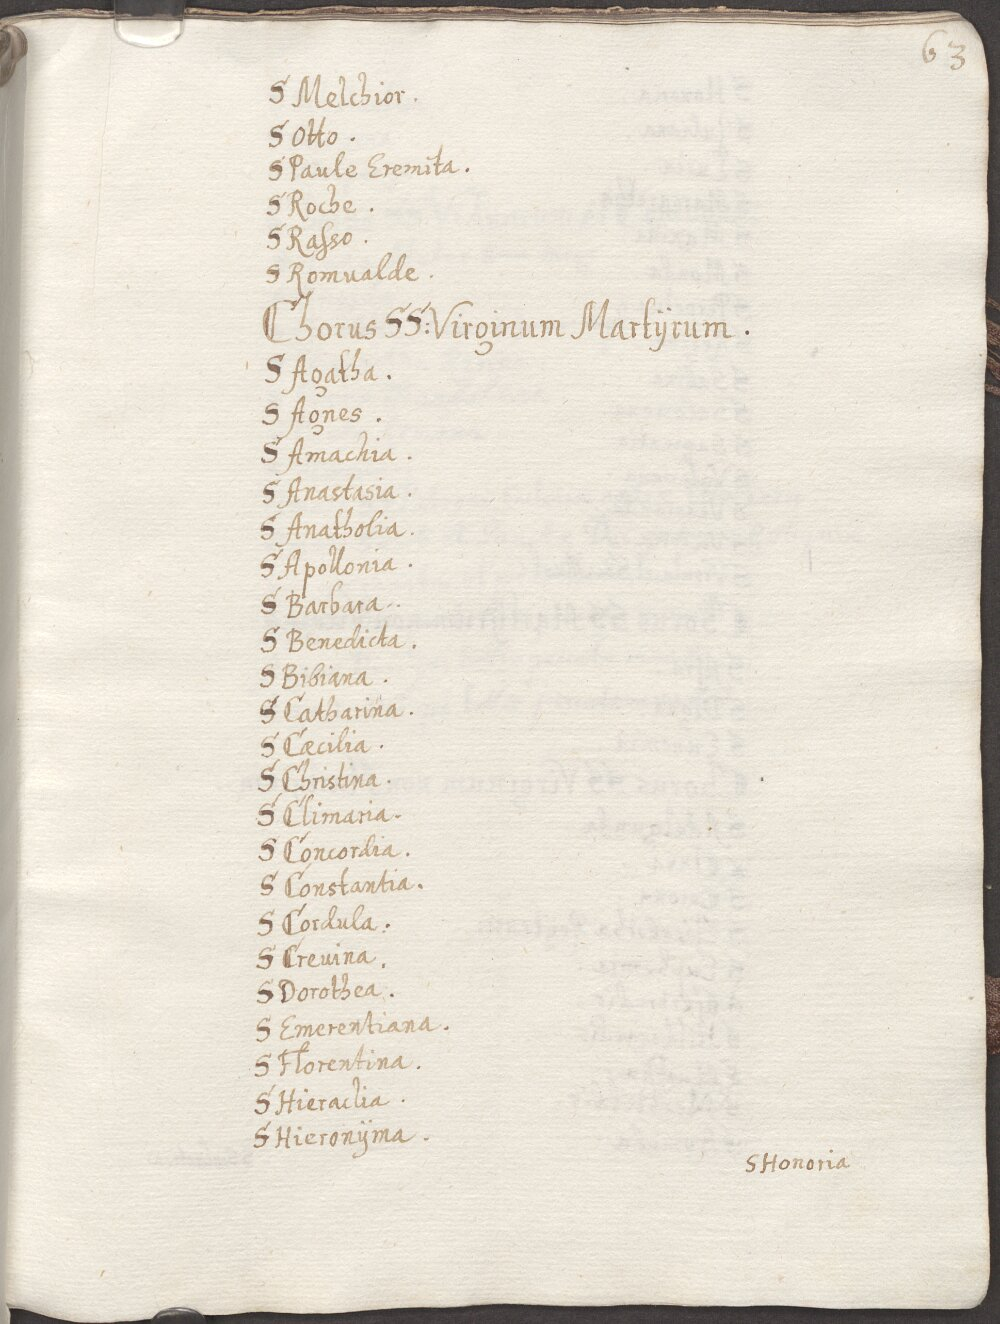 63
S Melchior.
S Otto.
S Paule Eremita.
S Roche.
S Raſso.
S Romualde.
Chorus SS: Virginum Martÿrum.
S Agatha.
S Agnes.
S Amachia.
S Anastasia.
S Anatholia.
S Apollonia.
S Barbara.
S Benedicta.
S Bibiana.
S Catharina.
S Cæcilia.
S Christina.
S Climaria.
S Concordia.
S Constantia.
S Cordula.
S Creuina.
S Dorothea.
S Emerentiana.
S Florentina.
S Hieraclia.
S Hieronÿma.
S Honoria